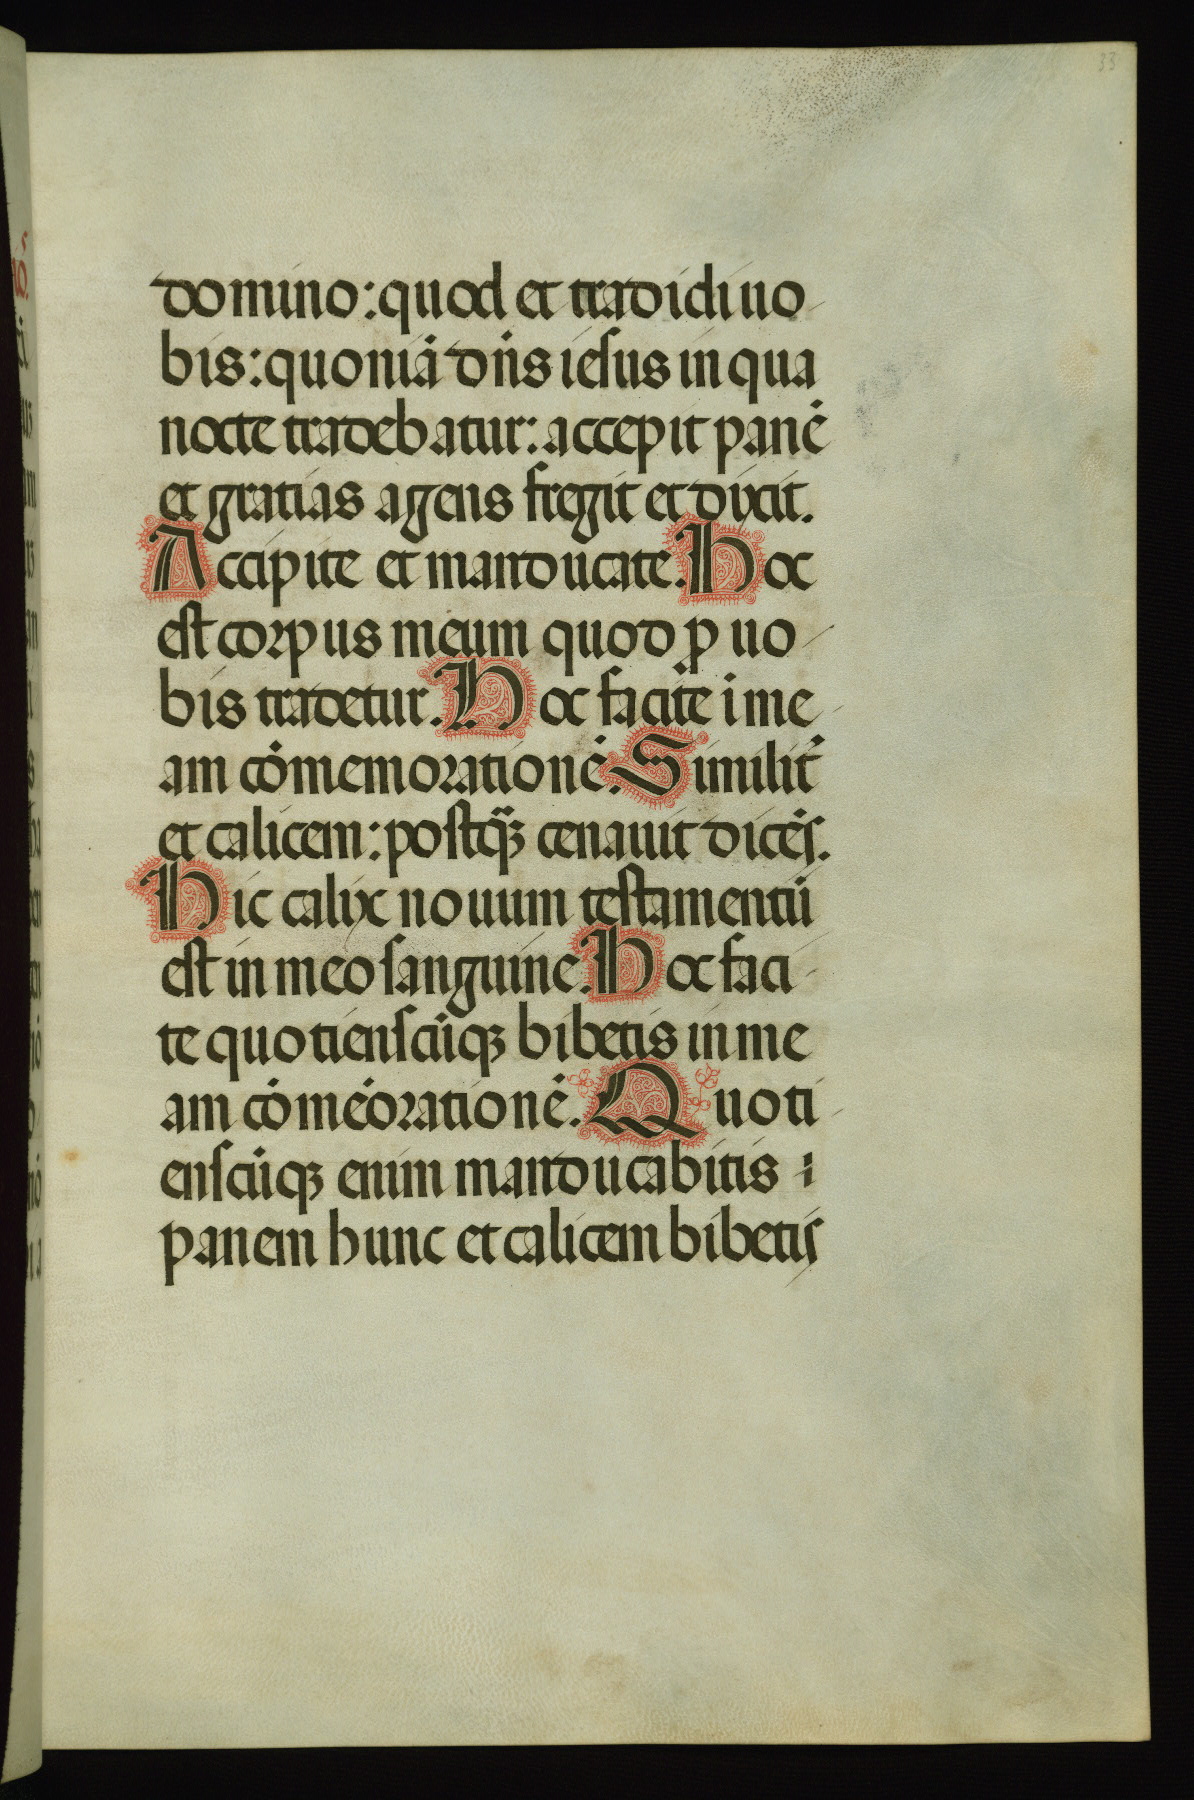 33
domino: quod et tradidi uo
bis: quoniā dn̄s iesus in qua
nocte tradebatur: accepit panē
et gratias agens fregit et dixit.
Accipite et manducate. Hoc
est corpus meum quod ꝓ uo
bis tradetur. Hoc facite i me
am cōmemorationē. Similit̄
et calicem: postqᷓꝫ cenauit dicēs.
Hic calix nouum testamentū
est in meo sanguine. Hoc faci
te quotienscūqꝫ bibetis in me
am cōmēorationē. Quoti
enscūqꝫ enim manducabitis
panem hunc et calicem bibetis